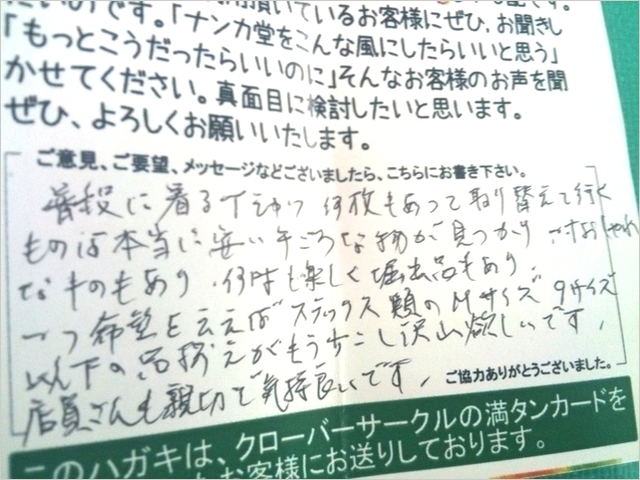 頂いているお客様にぜひ、お聞きし
「もっとこうだったらいいのに」「ナンカ堂をこんな風にしたらいいと思う」
かせてください。真面目に検討したいと思います。そんなお客様のお声を聞
ぜひ、よろしくお願いいたします。
ご意見、ご要望、メッセージなどございましたら、こちらにお書き下さい。
普段に着るTシャツ 何枚もあって取り替えて行く
ものは本当に安い手ごろな物が見つかり
なものもあり、何時も楽しく掘出品もあり、
一つ希望を云えばスラックス類のMサイズ、9サイズ
以下の品揃えがもう少こし沢山欲しいです、
店員さんも親切で気持良いです、
ご協力ありがとうございました。
このハガキは、クローバーサークルの満タンカードを
お客様にお送りしております。